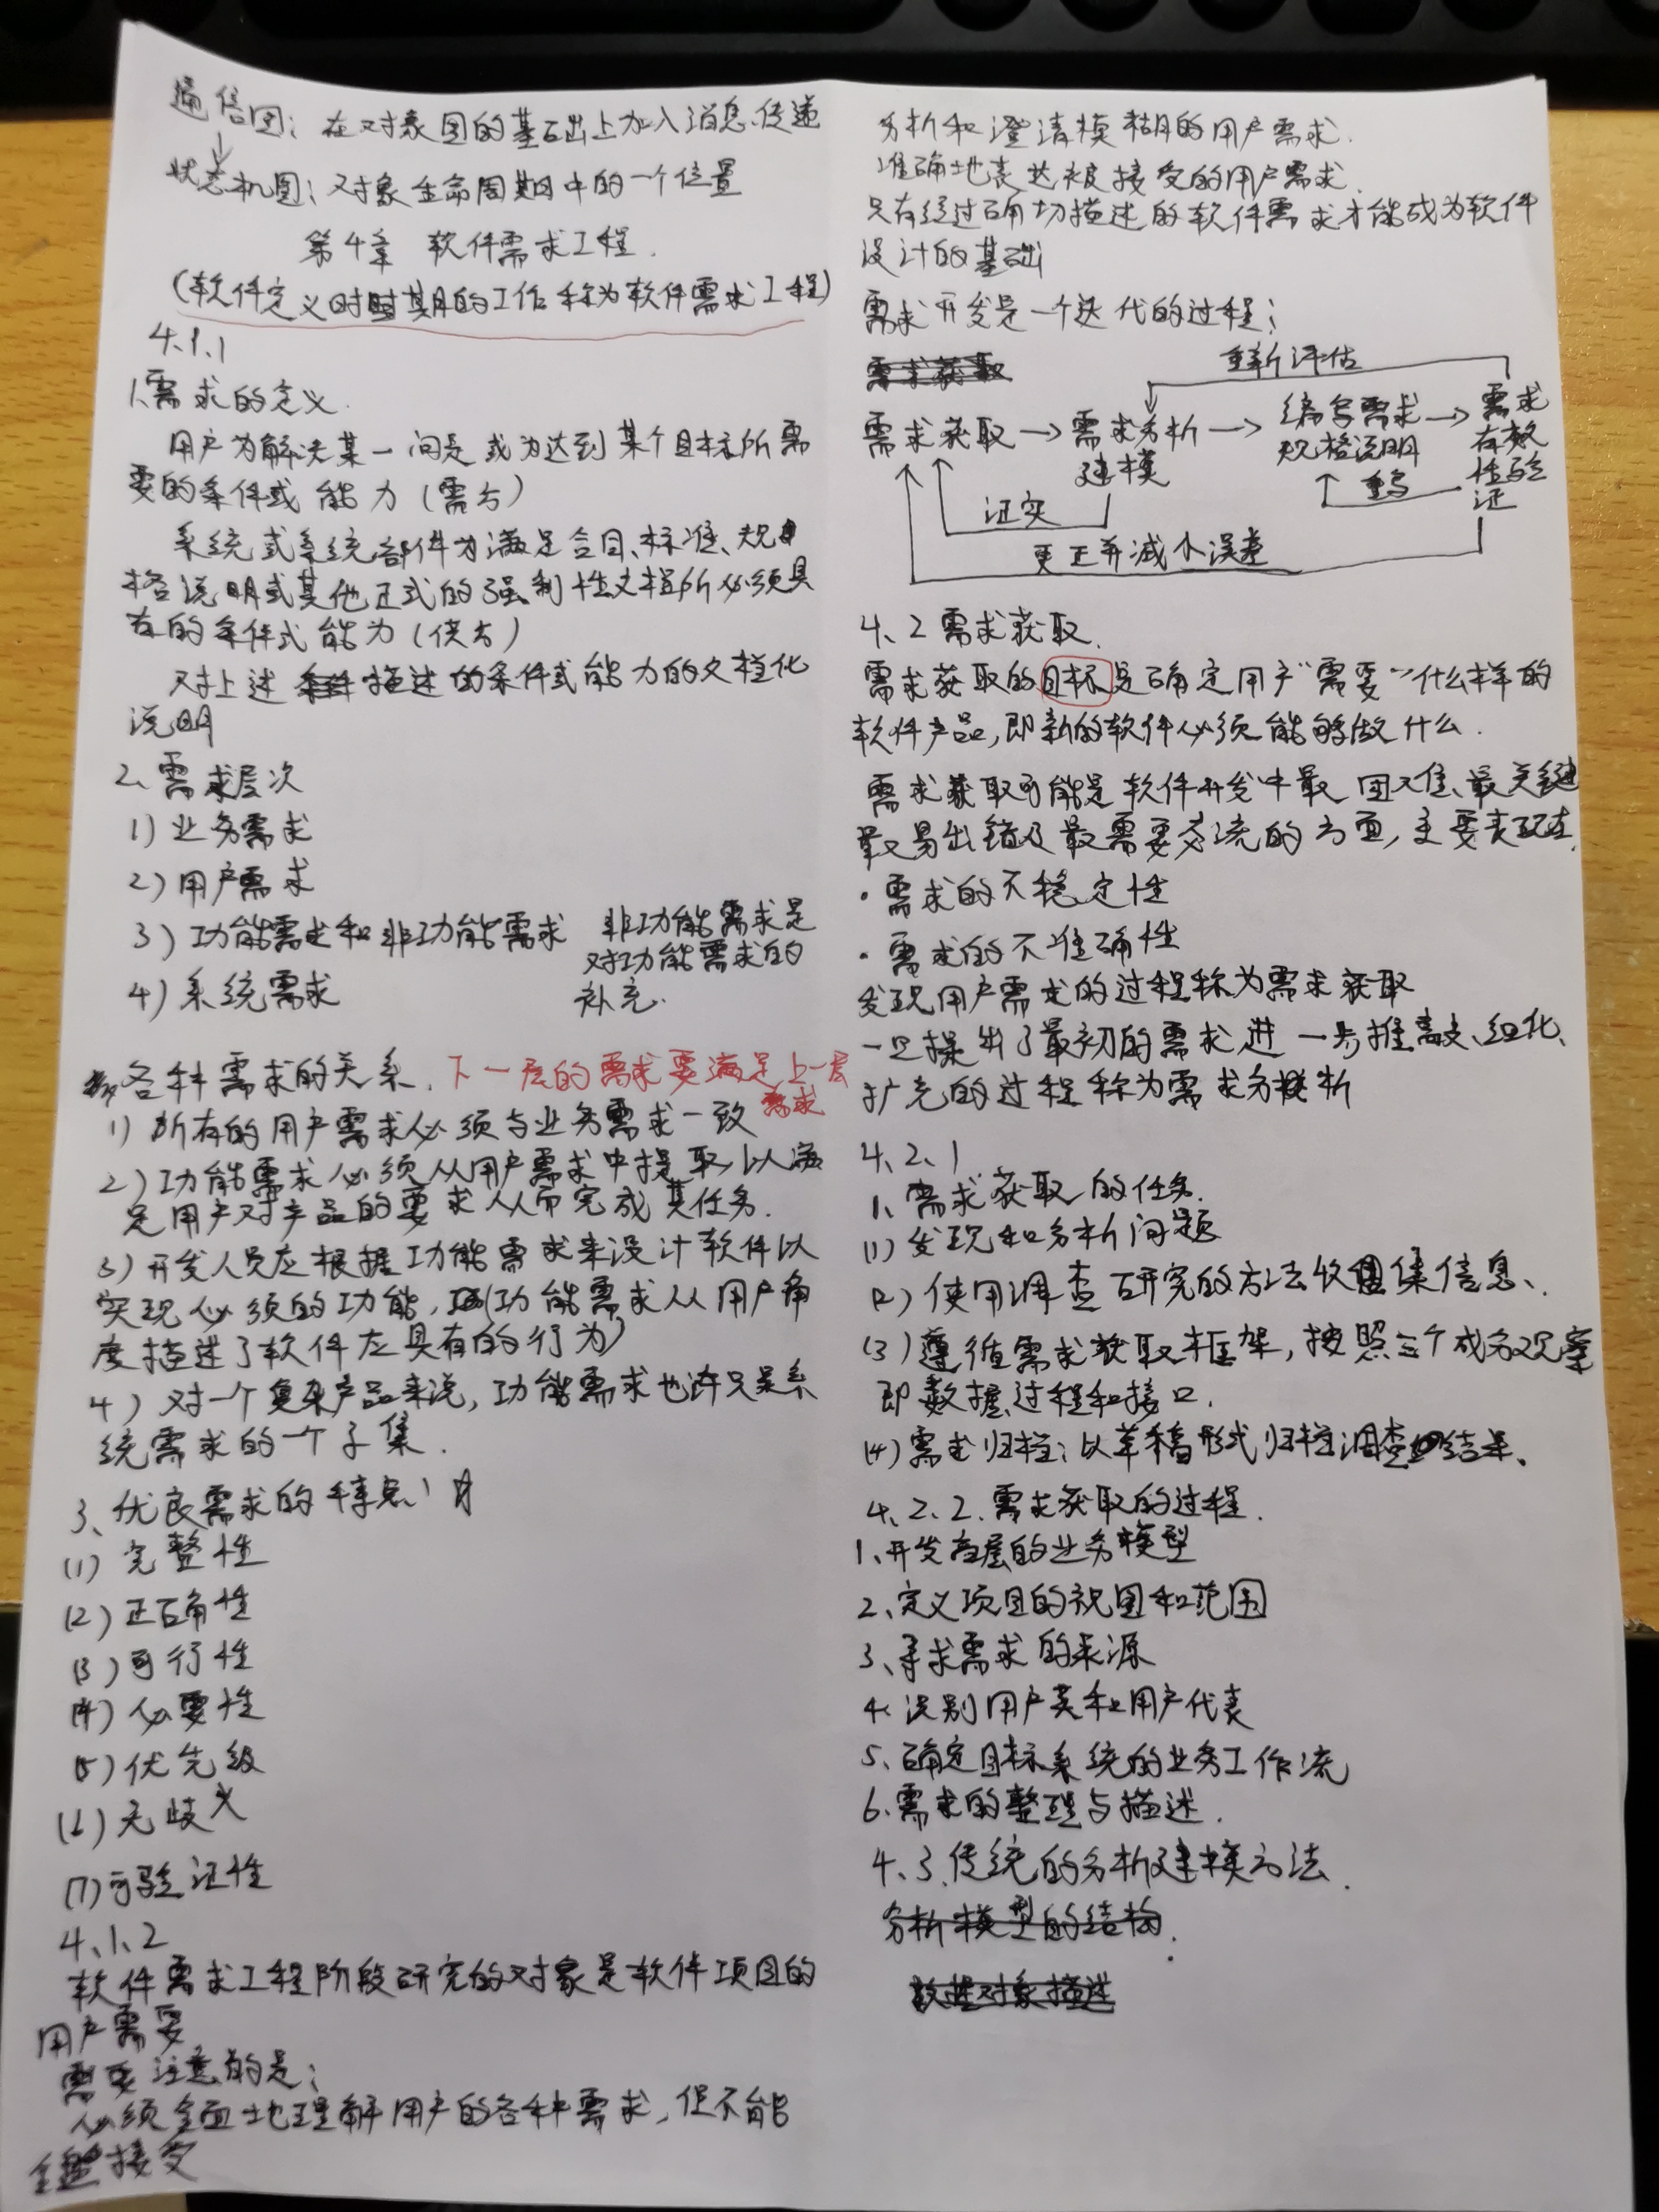 通信图：在对象图的基础上加入消息传递
状态机图：对象生命周期中的一个位置
第4章 软件需求工程.
(软件定义时期的工作称为软件需求工程)
4.1.1
1、需求的定义.
用户为解决某一问题或为达到某个目标所需
要的条件或能力(需方)
系统或系统部件为满足合同、标准、规
格说明或其他正式的强制性文档所必须具
有的条件或能力(供方)
对上述描述的条件或能力的文档化
说明
2、需求层次
1)业务需求
2)用户需求
3)功能需求和非功能需求 非功能需求是
对功能需求的
补充.
4)系统需求
各种需求的关系. 下一层的需求要满足上一层
需求
1)所有的用户需求必须与业务需求一致
2)功能需求必须从用户需求中提取,以满
足用户对产品的要求从而完成其任务.
3)开发人员应根据功能需求来设计软件以
实现必须的功能,功能需求从用户角
度描述了软件应具有的行为)
4)对一个复杂产品来说,功能需求也许只是系
统需求的一个子集.
3、优良需求的特点
(1)完整性
(2)正确性
(3)可行性
(4)必要性
(5)优先级
(6)无歧义
(7)可验证性
4.1.2
软件需求工程阶段研究的对象是软件项目的
用户需要
需要注意的是：
必须全面地理解用户的各种需求,但不能
全盘接受
分析和澄清模糊的用户需求.
准确地表达被接受的用户需求.
只有经过确切描述的软件需求才能成为软件
设计的基础
需求开发是一个迭代的过程：
需求获取
重新评估
需求获取→需求分析建模→编写需求规格说明→需求有效性验证
重写
证实
更正并减小误差
4.2 需求获取.
需求获取的目标是确定用户"需要"什么样的
软件产品,即新的软件必须能够做什么.
需求获取可能是软件开发中最困难、最关键
最易出错及最需要交流的方面,主要表现在
·需求的不稳定性
·需求的不准确性
发现用户需求的过程称为需求获取
一旦提出了最初的需求进一步推敲、细化、
扩充的过程称为需求分析
4.2.1
1、需求获取的任务.
(1)发现和分析问题
(2)使用调查研究的方法收集信息、.
(3)遵循需求获取框架,按照三个成分观察
即数据、过程和接口.
(4)需求归档：以草稿形式归档调查结果、
4.2.2.需求获取的过程.
1、开发高层的业务模型
2、定义项目的视图和范围
3、寻求需求的来源
4、识别用户类和用户代表
5、确定目标系统的业务工作流
6、需求的整理与描述.
4.3.传统的分析建模方法.
分析模型的结构.
数据对象描述